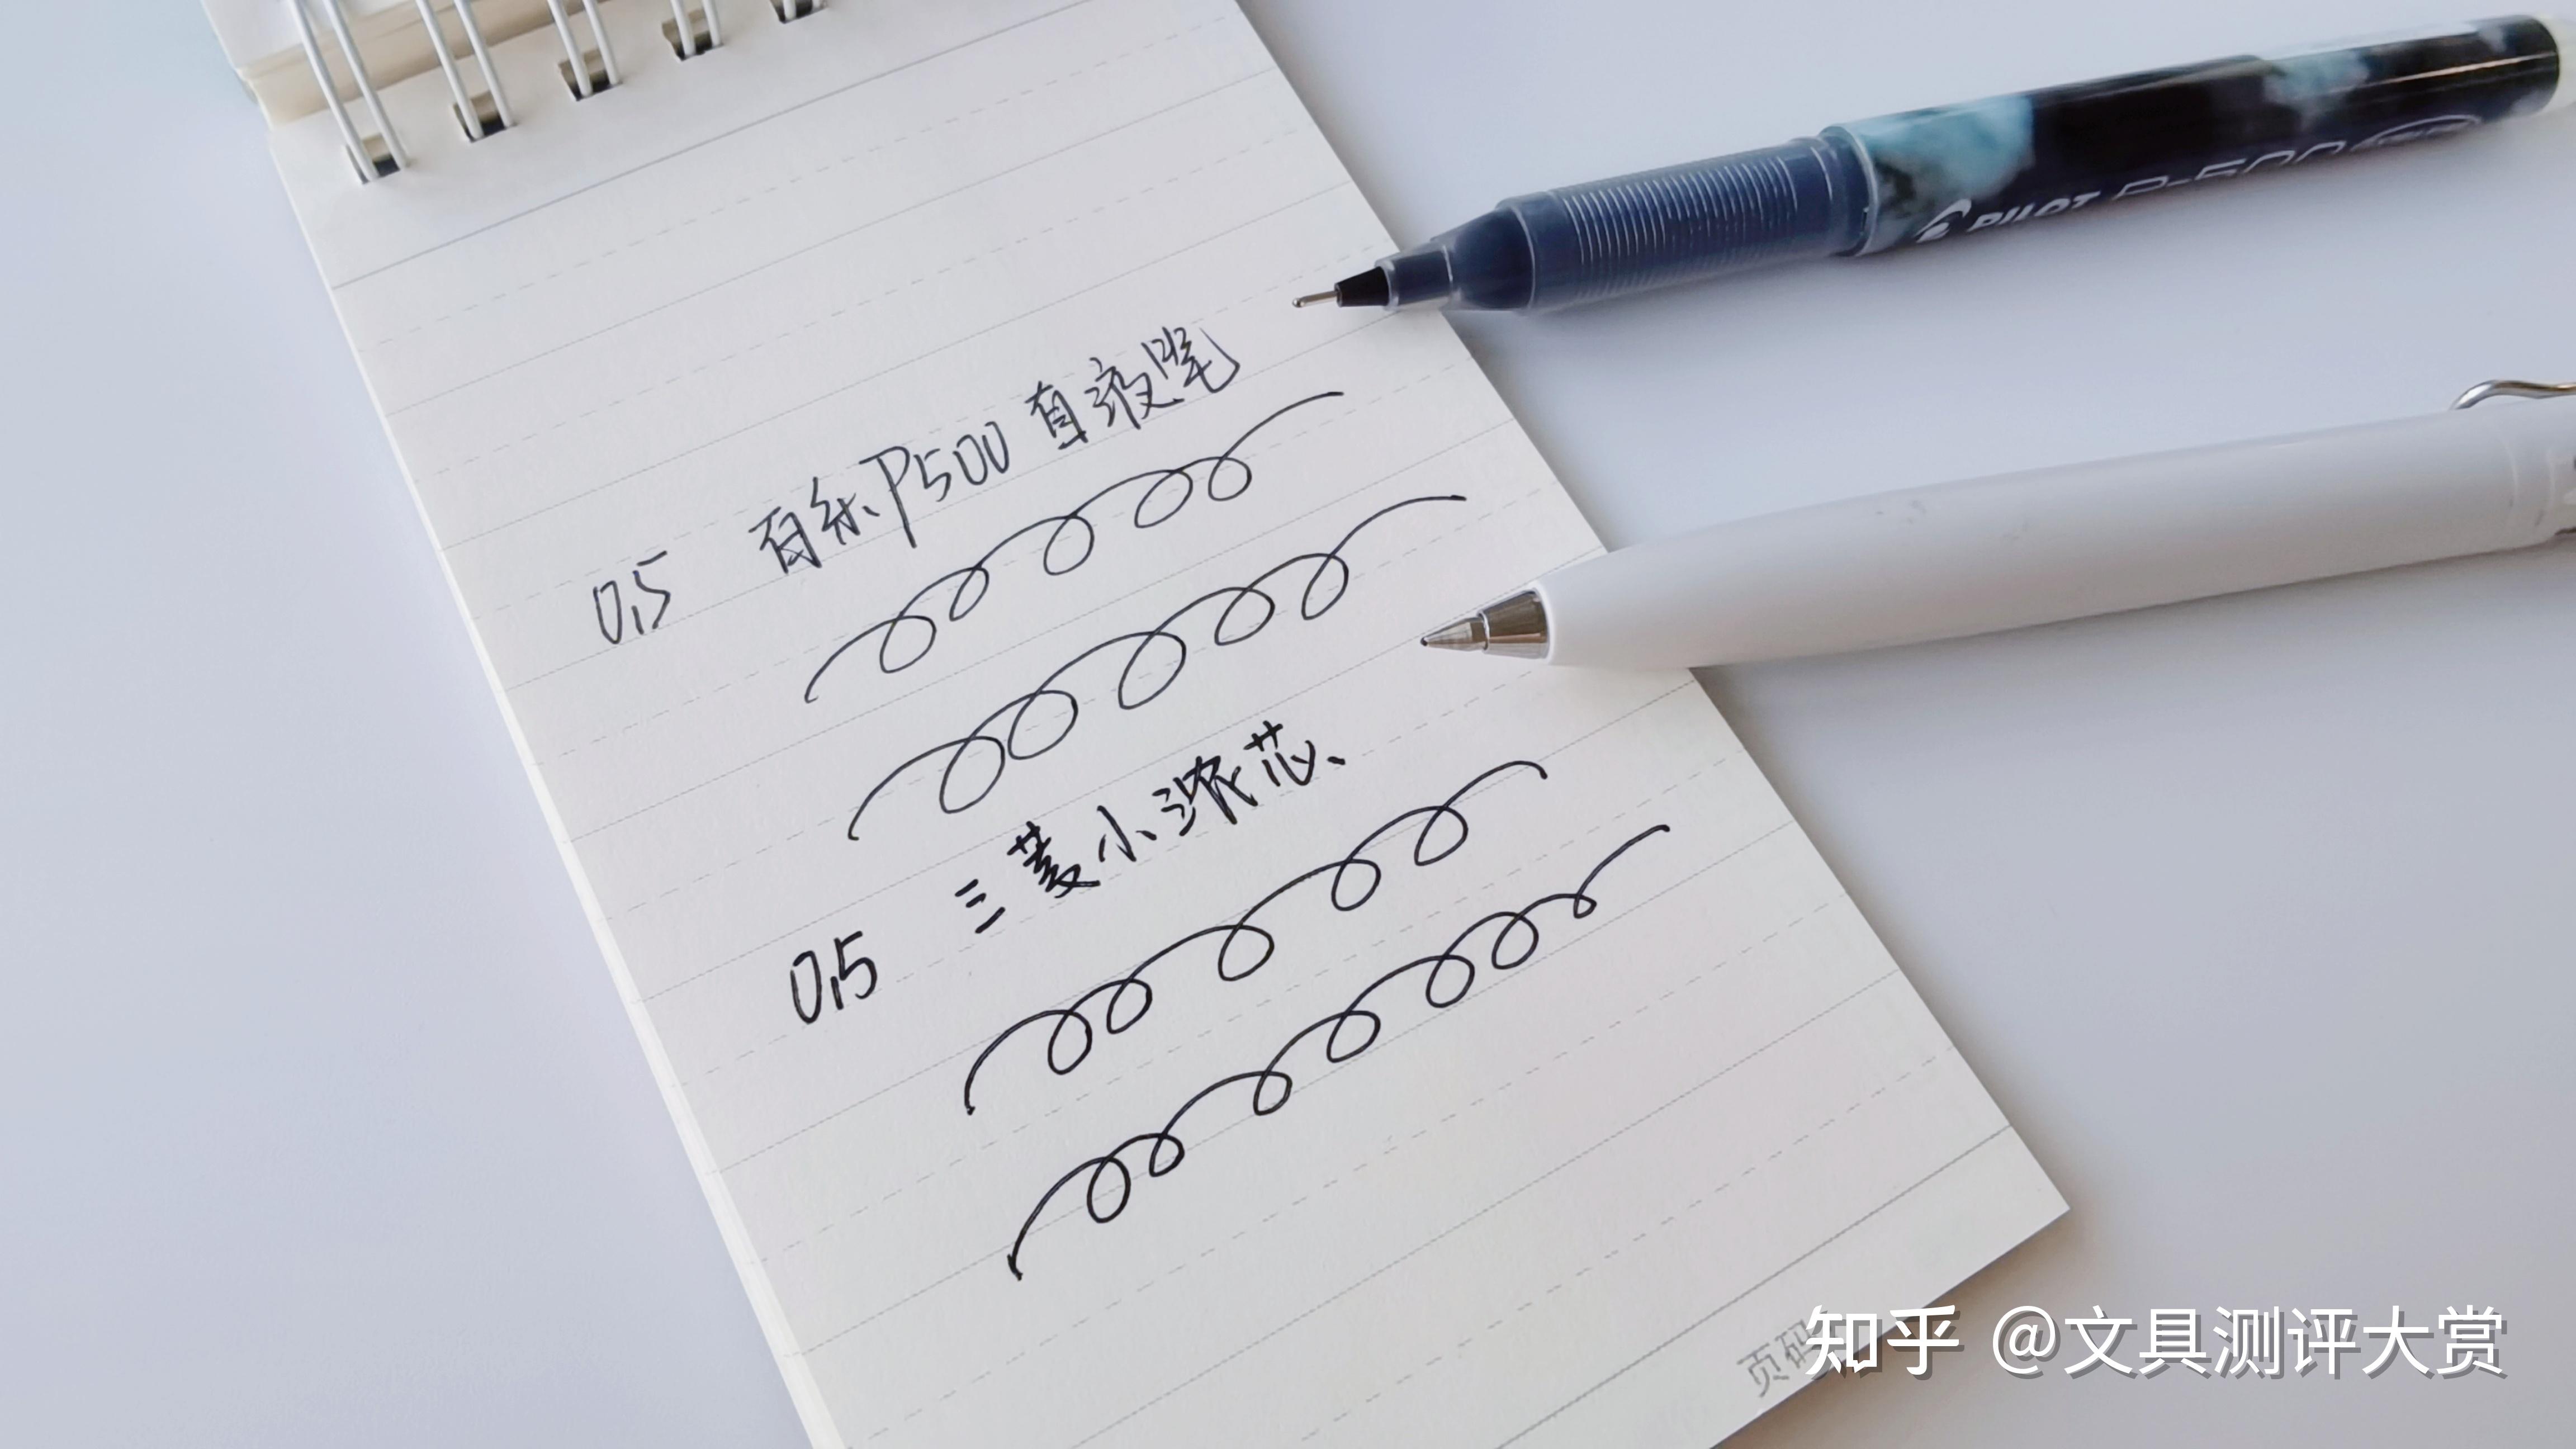 PILOT P-500
0.5 百乐P500 直液笔
0.5 三菱小浓芯
页码
知乎 @文具测评大赏